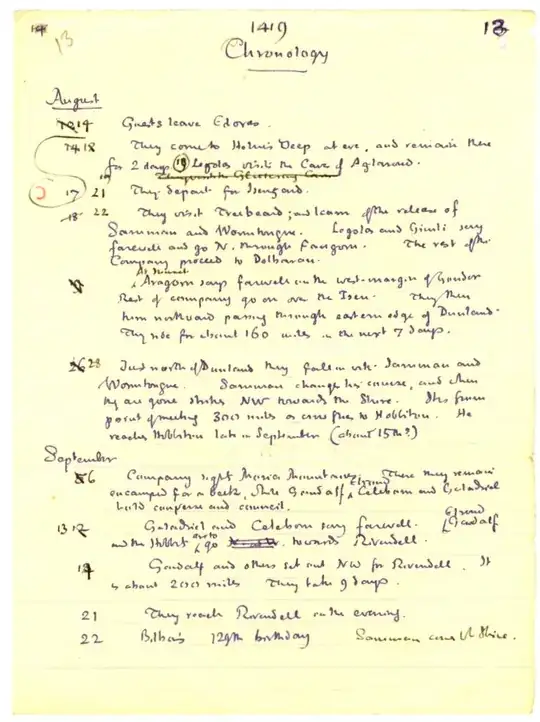 14 1419 13
13
Chronology
August
14 Guests leave Edoras.
18 They come to Helm's Deep at eve, and remain there
for 2 days. 19 Legolas visits the Cave of Aglarond.
17 21 They depart for Isengard.
18 22 They visit Treebeard; and learn of the release of
Saruman and Wormtongue. Legolas and Gimli say
farewell and go N. through Fangorn. The rest of the
Company proceed to Dolbaran.
At sunset
Aragorn says farewell on the west-margin of Gondor
Rest of company go on over the Isen. They then
turn northward passing through eastern edge of Dunland.
They ride for about 160 miles in the next 7 days.
26 28 Just north of Dunland they fall in with Saruman and
Wormtongue. Saruman changes his course, and when
they are gone strikes NW towards the Shire. It is from
point of meeting 300 miles as crow flies to Hobbiton. He
reaches Hobbiton late in September (about 15th?)
September
6 Company sight Moria Mountains. There they remain
encamped for a week, while Gandalf Elrond Celeborn and Galadriel
hold converse and council.
13 Galadriel and Celeborn say farewell. Elrond Gandalf
and the Hobbits go towards Rivendell.
Gandalf and others set out NW for Rivendell. It
is about 200 miles They take 9 days.
21 They reach Rivendell in the evening.
22 Bilbo's 129th birthday Saruman comes to Shire.